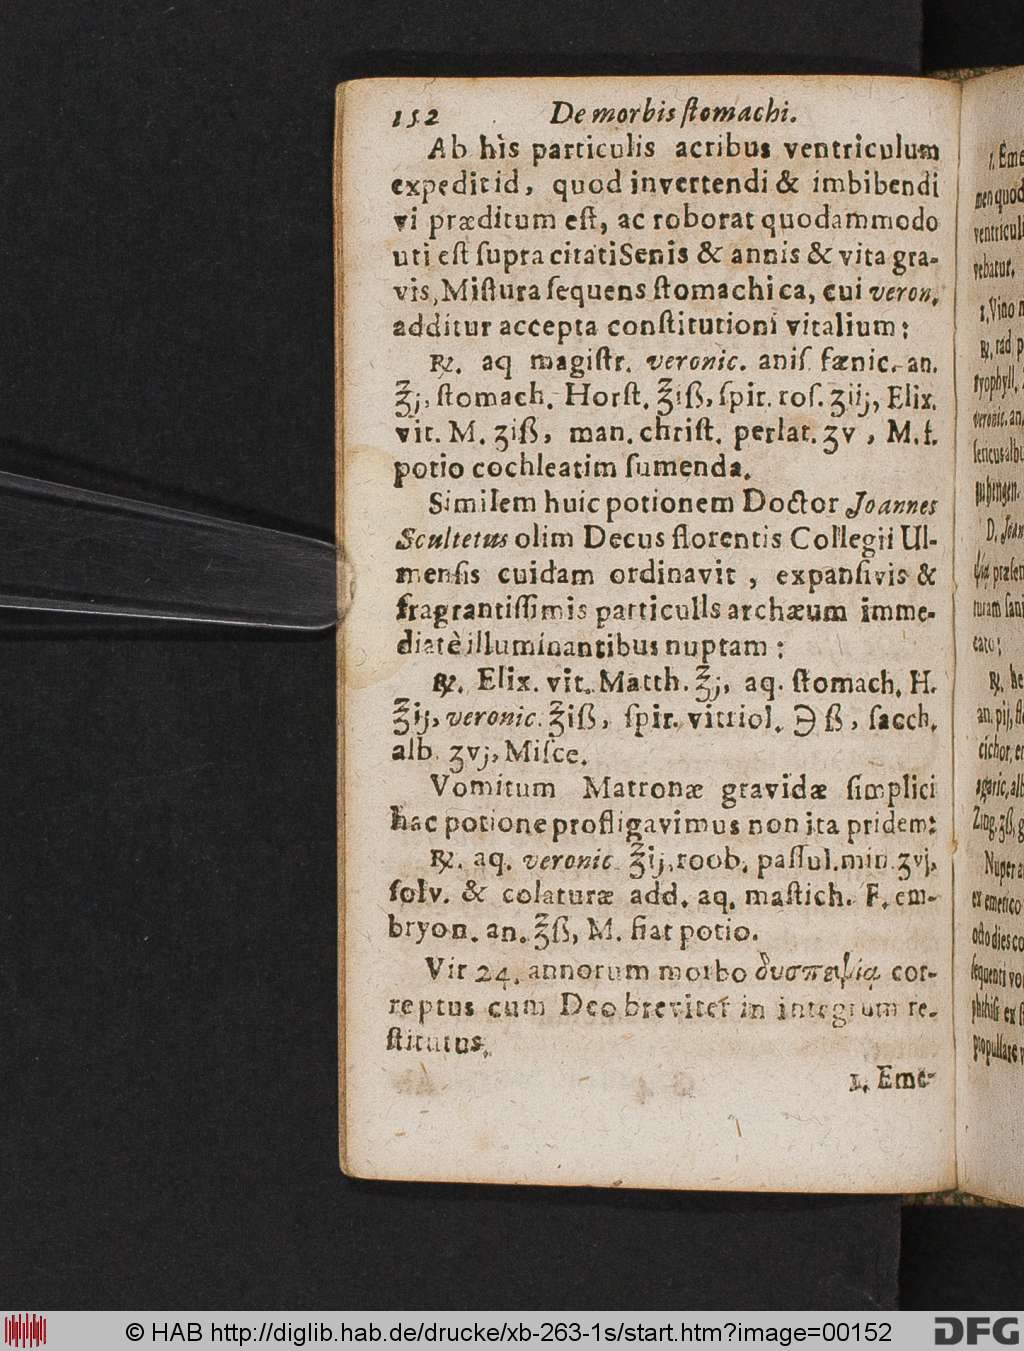 152 De morbis ſtomachi.
Ab his particulis acribus ventriculum
expedit id, quod invertendi & imbibendi
vi præditum eſt, ac roborat quodammodo
uti eſt ſupra citati Senis & annis & vita gra-
vis, Miſtura ſequens ſtomachica, cui veron.
additur accepta conſtitutioni vitalium:
℞. aq magiſtr. veronic. aniſ. fænic. an.
℥j, ſtomach. Horſt. ℥iß, ſpir. roſ. ʒiij, Elix.
vit. M. ʒiß, man. chriſt. perlat. ʒv, M. f.
potio cochleatim ſumenda.
Similem huic potionem Doctor Joannes
Scultetus olim Decus florentis Collegii Ul-
menſis cuidam ordinavit, expanſivis &
fragrantiſſimis particulis archæum imme-
diatè illuminantibus nuptam:
℞. Elix. vit. Matth. ℥j, aq. ſtomach. H.
℥ij, veronic. ℥iß, ſpir. vitriol. ℈ß, ſacch.
alb. ʒvj, Miſce.
Vomitum Matronæ gravidæ ſimplici
hac potione profligavimus non ita pridem:
℞. aq. veronic ℥ij, roob. paſſul. min. ʒvj,
ſolv. & colaturæ add. aq. maſtich. F. em-
bryon. an. ℥ß, M. fiat potio.
Vir 24. annorum morbo δυσπεψίᾳ cor-
reptus cum Deo breviter in integrum re-
ſtitutus.
1. Eme-
1. Eme
men quod
ventricul
vebatur.
1. Vino
℞. rad. p
veronic. an.
D. Joan
turam
℞. he
cichor.
agaric. alb
Nuper a
ex emetico
octo dies co
ſequenti vo
phthiſi ex
propulſare
© HAB http://diglib.hab.de/drucke/xb-263-1s/start.htm?image=00152
DFG